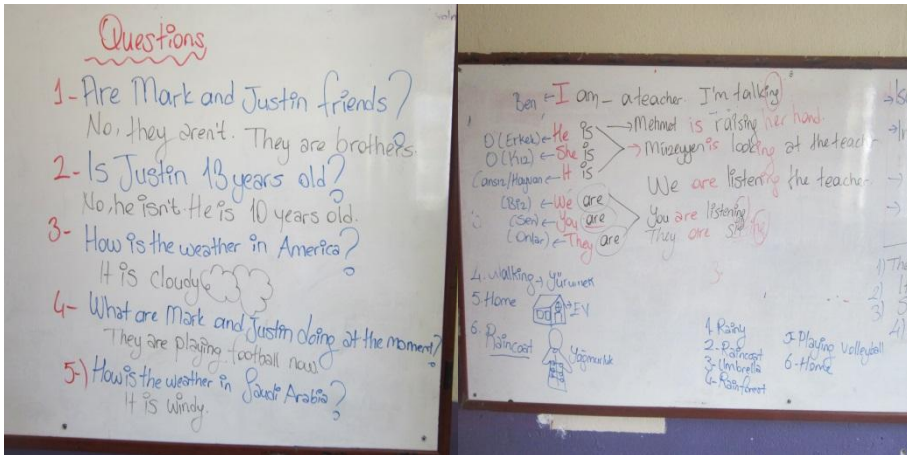 Questions
1- Are Mark and Justin friends?
No, they aren't. They are brothers.
2- Is Justin 13 years old?
No, he isn't. He is 10 years old.
3-
How is the weather in America?
It is cloudy
4- What are Mark and Justin doing at the moment?
They are playing football now.
5-) How is the weather in Saudi Arabia?
It is windy.
Ben ← I am - a teacher. I'm talking
O (Erkek) ← He is → Mehmet is raising her hand.
O (Kız) ← She is → Müzeyyen is looking at the teacher
Cansız/Hayvan ← It is
We are listening the teacher
(Biz) ← We are
(Sen) ← You are You are listening
(Onlar) ← They are They are
4. Walking → Yürümek
5. Home → EV
6. Raincoat Yağmurluk
1. Rainy
2- Raincoat
3- Umbrella
4- Rainforest
5- Playing volleyball
6- Home
1)
2)
3)
4)